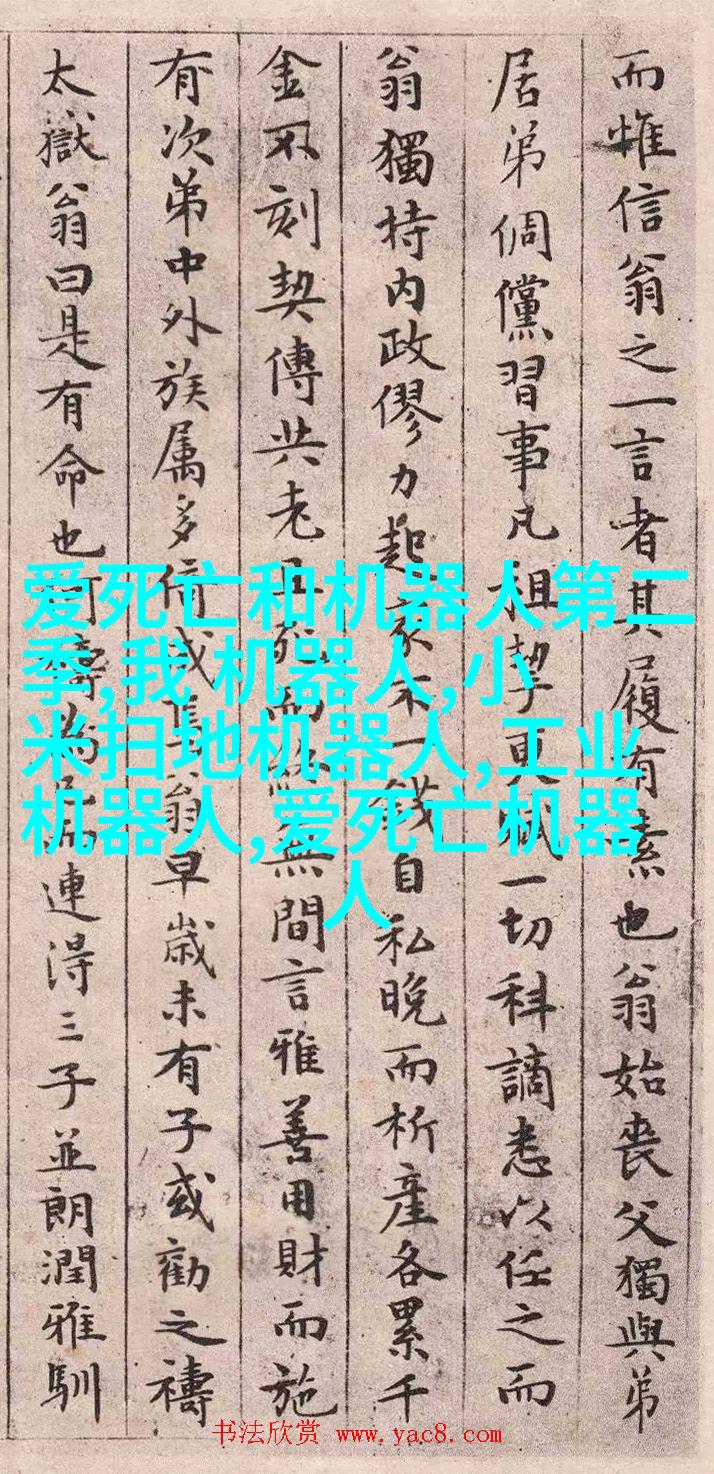 而惟信翁之一言者其履有素也翁始喪父獨與弟
居弟倜儻習事凡租挈更賦一切科謫悉以任之而
翁獨持内政僇力起家不一錢自私晚而析產各累千
金不刻契傳共老且死而無間言雅善用財而施
有次第中外族属多倚成翁早歲未有子或勸之禱
太嶽翁曰是有命也可禱連得三子並朗潤雅馴
爱死亡和机器人第二
季,我 机器人,小
米扫地机器人,工业
机器人,爱死亡机器
人
书法欣赏 www.yac8.com